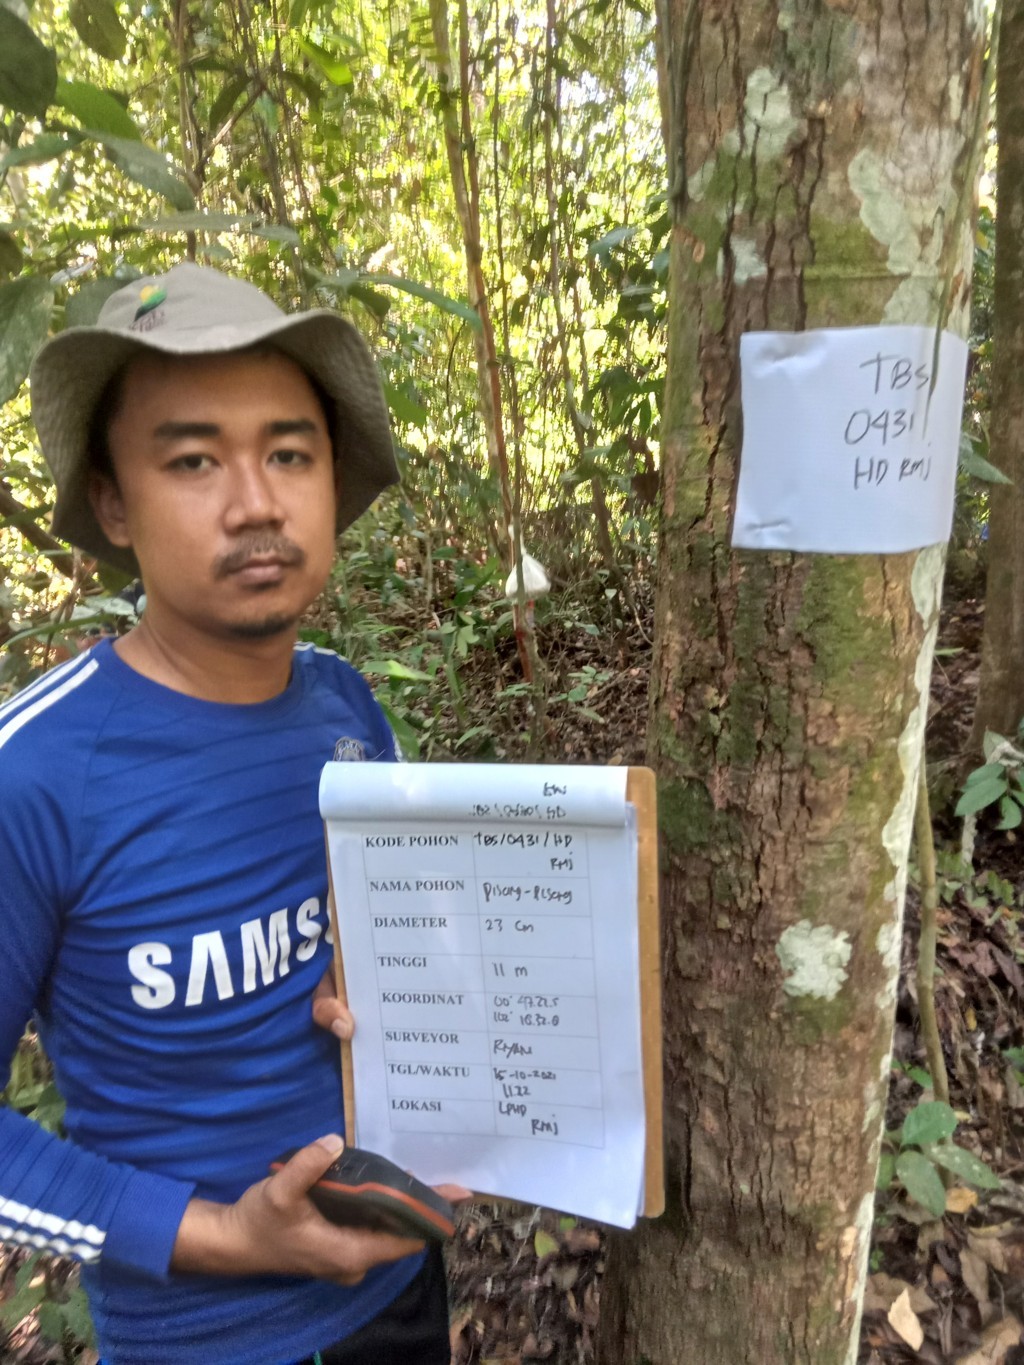 TBS
0431
HD RMJ
SAMS
KODE POHON TBS/0431/HD
RMJ
NAMA POHON Pisang-Pisang
DIAMETER 23 cm
TINGGI 11 m
KOORDINAT 00° 47.22.5
102° 18.32.8
SURVEYOR RIYAN
TGL/WAKTU 15-10-2021
11.22
LOKASI LPHD
RMJ